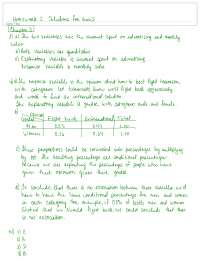 Homework 2 Solutions for Exam 2
Chapter 3
1) a) The two variables are the amount spent on advertising and monthly
sales.
b) Both variables are quantitative
c) Explanatory variable is amount spent on advertising
Response variable is monthly sales
a) The response variable is the opinion about how to best fight terrorism
with categories let terrorists know we'll fight back aggressively
and work to find an international solution.
The explanatory variable is gender with categories male and female
b)
Gender Fight back International Total
Men 1.00
Women 1.00
c) These proportions could be converted into percentages by multiplying
by 100. The resulting percentages are conditional percentages
because we are reporting the percentage of people who have
given their opinion given their gender.
d) To conclude that there is no association between these variables we'd
have to have the same conditional percentages for men and women
in each category. For example, if of both men and women
that we should fight back we could conclude that there
is no association.
1) B
2) A
3) D
4) B